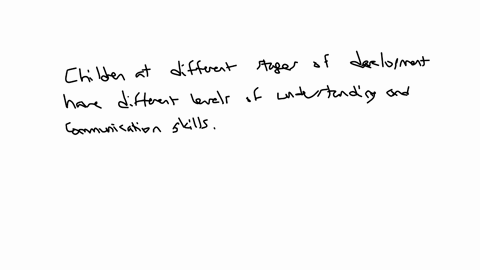 Children at different stages of development
have different levels of understanding and
communication skills.